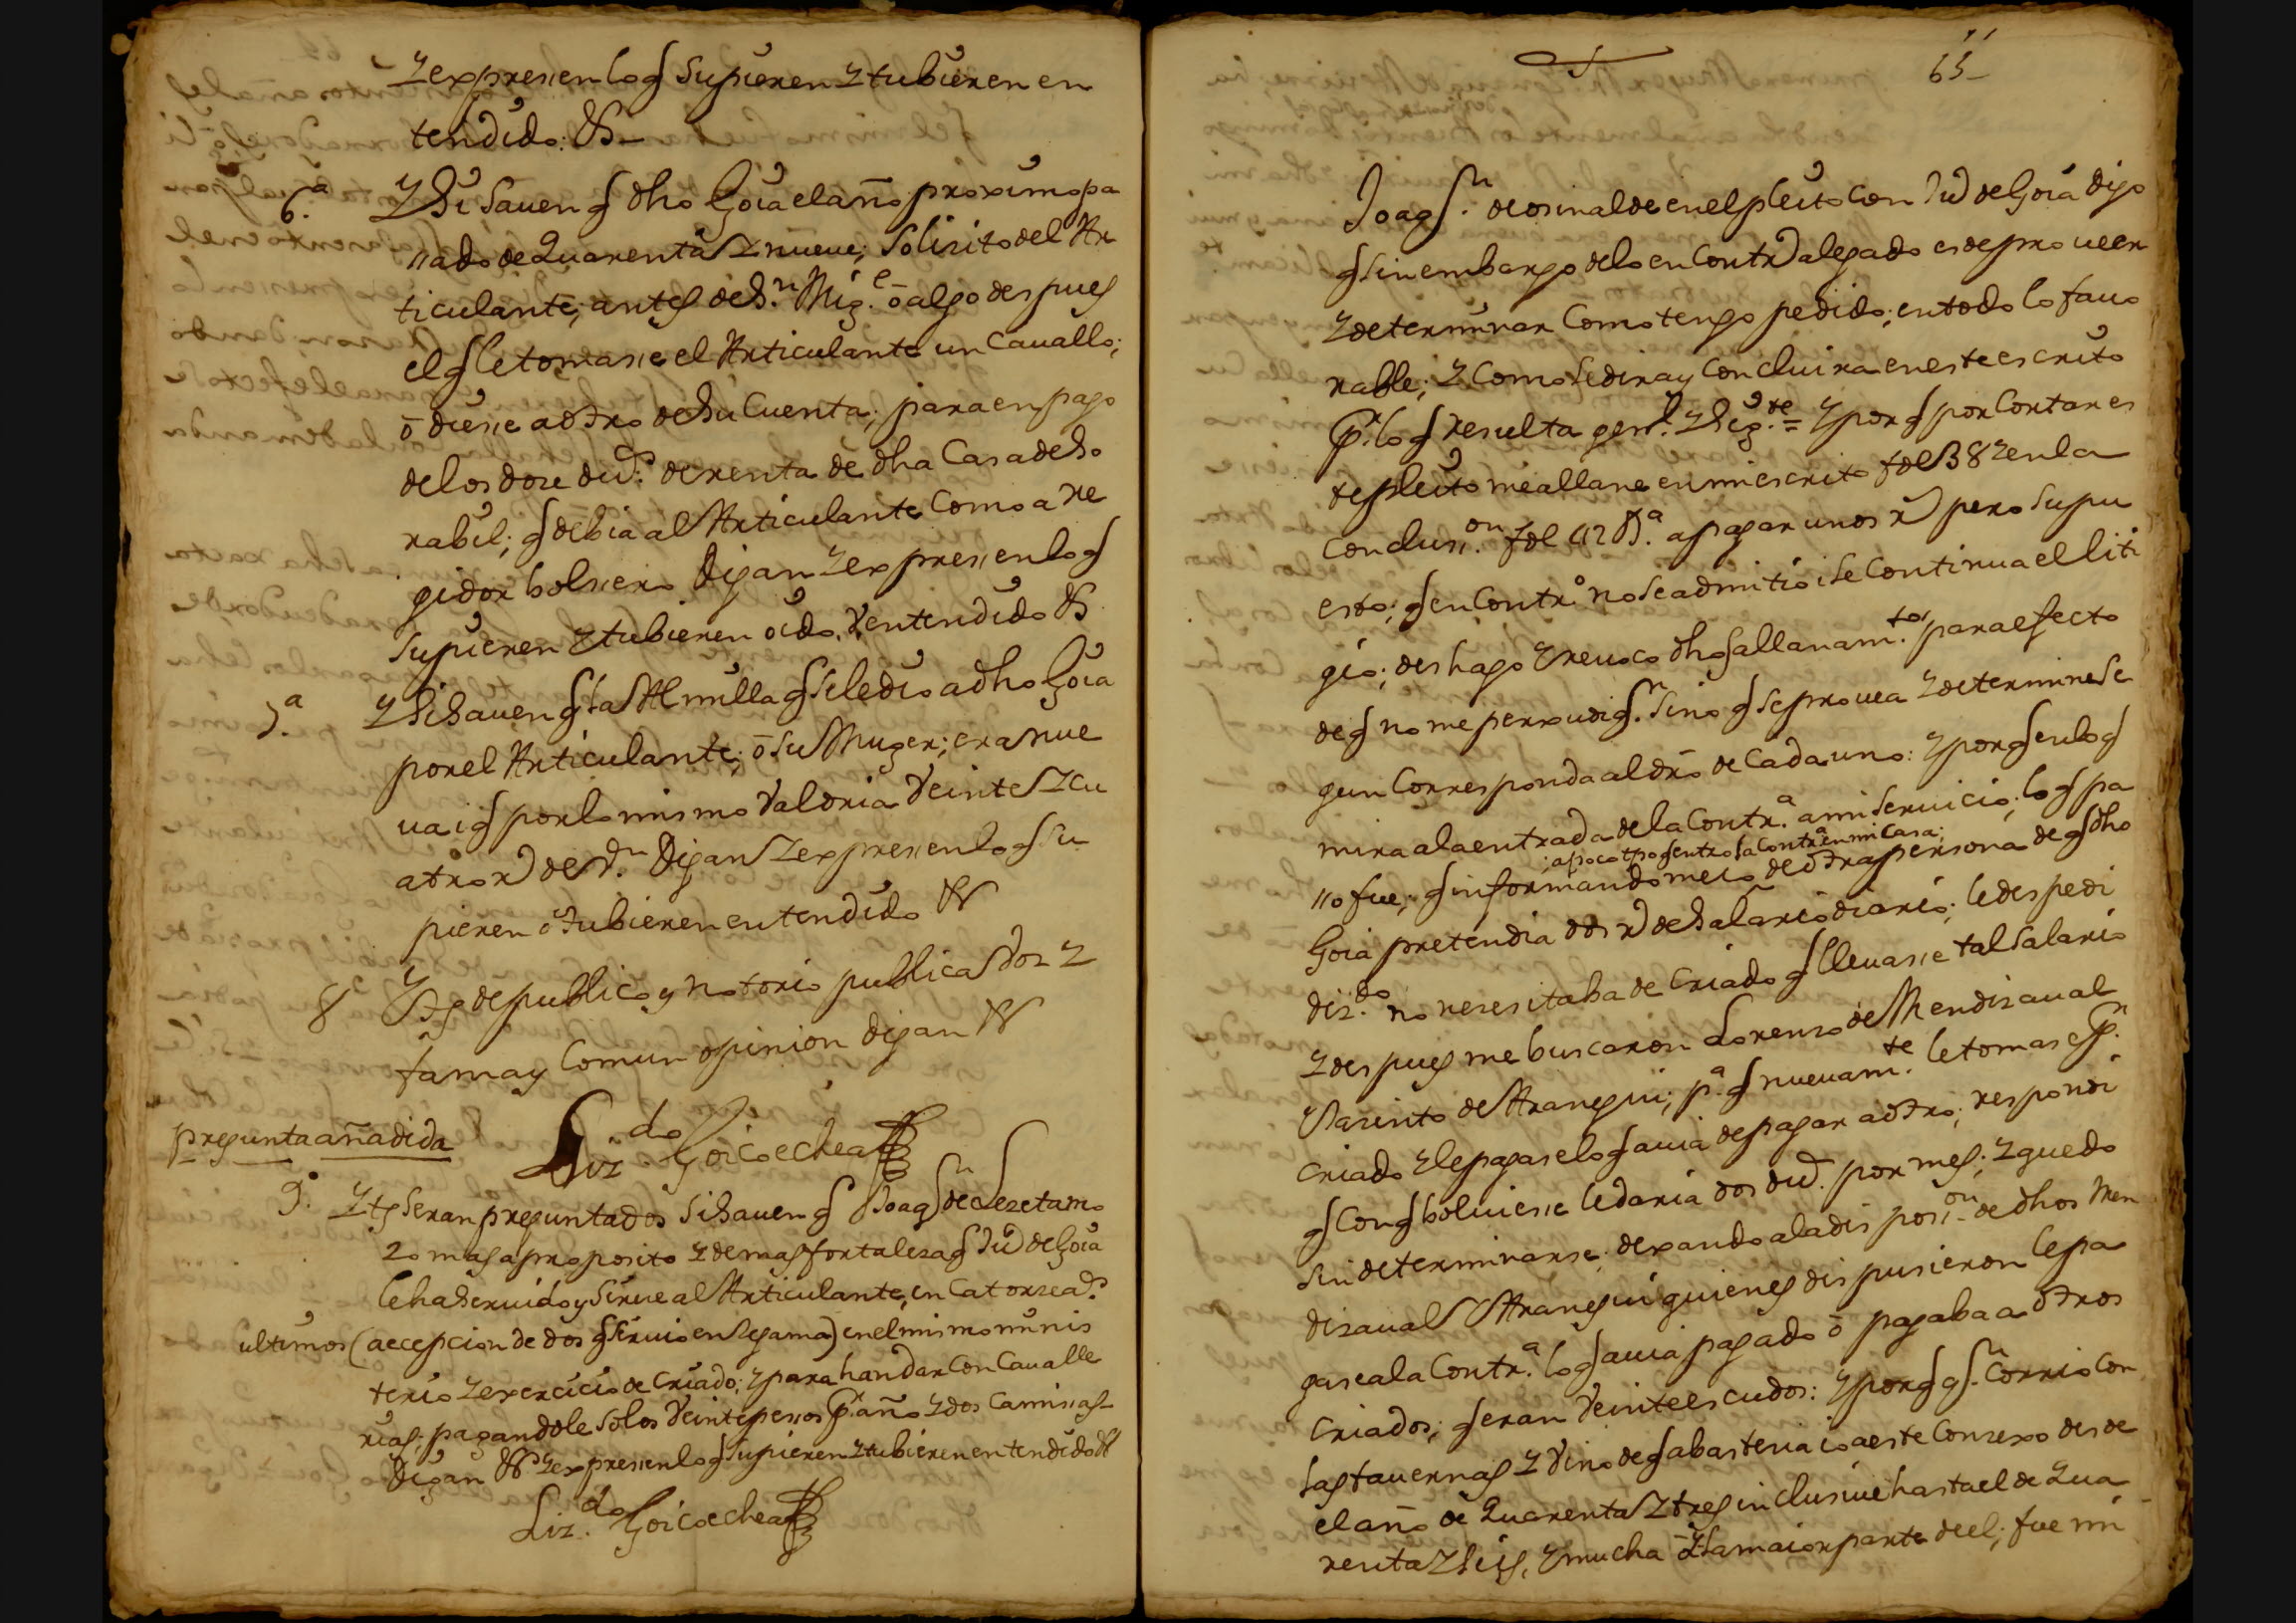 Y expressen lo q supieren y tubieren en
tendido: &
6.ª Y Si Saven q dho Goia el año proximo pa
ssado de Quarenta y nueve; Solizito del Ar
ticulante; antes de S.n Mig.l ō algo despues
el q le tomasse el Articulante un Cavallo;
ō diesse a otro de Su Cuenta; para en pago
de los doze du.s de renta de dha Casa de So
rabil; q debia al Articulante Como a Re
gidor bolssero Digan y expressen lo q
supieren y tubieren oido, y entendido &
7.ª Y Si Saven q la Almilla q se le dio a dho Goia
por el Articulante; ō su Muger; era nue
va i q por lo mismo Valdria Veinte y cu
atro rs de v.n Digan y expressen lo q su
pieren o tubieren entendido &
8 Yt de publico y notorio publica voz y
fama y Comun opinion digan &
Liz.do Goicoechea
pregunta añadida
9. Yt Seran preguntados Si Saven q Joaq.n de Lezeta mo
zo mas a proposito y de mas fortaleza q Ju de Goia
le ha Servido y Sirve al Articulante, en Catorze a.s
ultimos (a ecepcion de dos q Sirvio en Segama) en el mismo minis
terio y exercicio de Criado; y para handar Con Cavalle
rias; pagandole Solos Veinte pessos p.r año y dos Camissas
Digan & y expressen lo q Supieren y tubieren entendido &
Liz.do Goicoechea
65
Joaq.n de osinalde en el pleito Con Ju de Goia digo
q sin embargo de lo en Contr alegado es de proveer
y determinar Como tengo pedido; en todo lo favo
rable; y Como Se dira y Concluira en este escrito
p.r lo q resulta gen.l y Sig.te = Y por q por Cortar es
te pleito me allane en mi escrito fol 38 y en la
Conclus.on fol 42 a pagar unos rs pero Supu
esto; q en Contr.o no Se admitio i Se Continua el liti
gio; deshago y revoco dhos allanam.tos para efecto
de q no me perxudiq.n Sino q Se provea y determine Se
gun Corresponda al dro de Cada uno: Y por q en lo q
mira a la entrada de la Contr.a a mi Servicio; lo q pa
; a poco tpo q entro la Contr.a en mi Casa;
sso fue; q informandome io de otra persona de q dho
Goia pretendia dos rs de Salario diario; le despedi
diz.do no nezesitaba de Criado q llevasse tal Salario
y despues me buscaron Lorenzo de Mendizaval
Jazinto de Aranegui; p.a q nuevam.te le tomase p.r
Criado y le pagase lo q avia de pagar a otro; respondi
q Con q bolviesse le daria dos du. por mes; y quedo
sin determinarse; dexando a la disposs.on de dhos Men
dizaval y Aranegui quienes dispusieron le pa
gase a la Contr.a lo q avia pagado ō pagaba a otros
Criados; q eran Veinte escudos: Y por q q.n Corrio Con
las tavernas y Vino de q abastezia io a este Conzexo desde
el año de Quarenta y tres inclusive hasta el de Qua
renta y Seis, y mucha ō la maior parte de el; fue mi